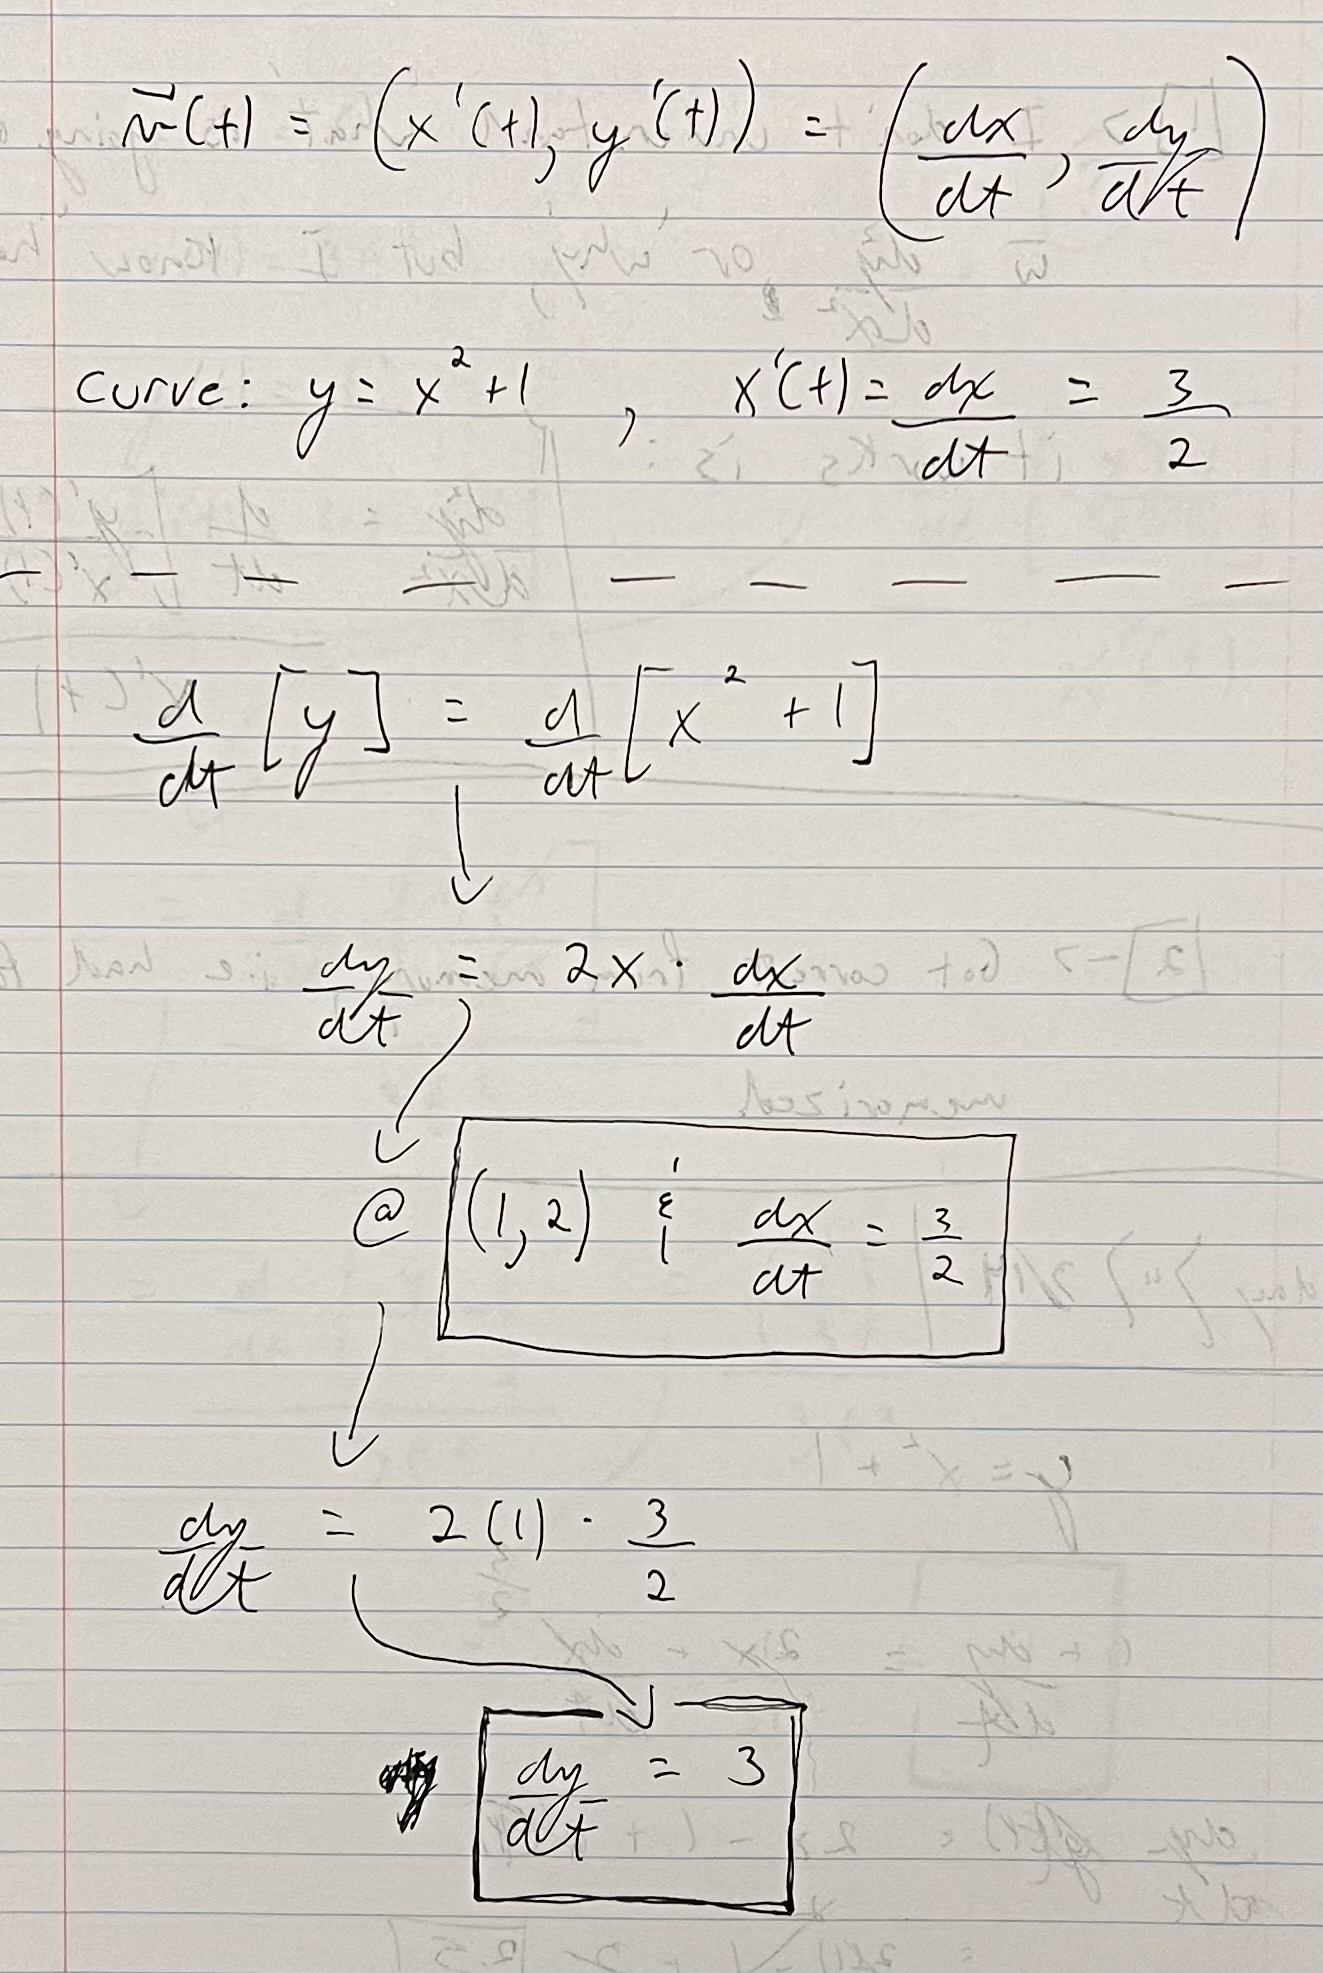 v⃗(t) = (x'(t), y'(t)) = (dx/dt, dy/dt)
curve: y = x² + 1, x'(t) = dx/dt = 3/2
d/dt [y] = d/dt [x² + 1]
dy/dt = 2x · dx/dt
@ (1, 2) & dx/dt = 3/2
dy/dt = 2(1) · 3/2
dy/dt = 3